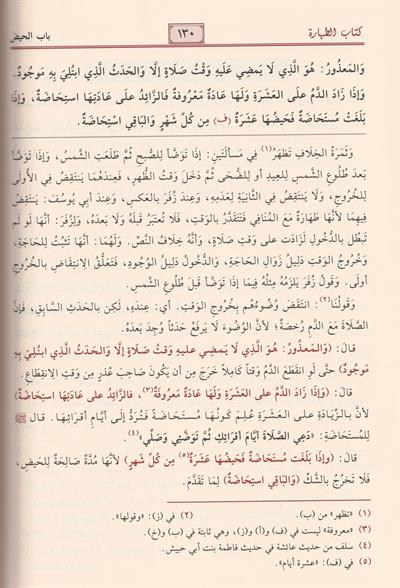 كتاب الطهارة
١٣٠
باب الحيض
وَالمَعذُورُ: هُوَ الَّذِي لَا يَمضِي عَلَيهِ وَقْتُ صَلَاةٍ إلَّا وَالحَدَثُ الَّذِي ابتُلِيَ بِهِ مَوجُودٌ.
وَإِذَا زَادَ الدَّمُ عَلَى العَشَرَةِ وَلَهَا عَادَةٌ مَعْرُوفَةٌ فَالزَّائِدُ عَلَى عَادَتِهَا استِحَاضَةٌ، وَإِذَا
بَلَغَتْ مُستَحَاضَةً فَحَيضُهَا عَشَرَةٌ (ف) مِن كُلِّ شَهْرٍ وَالبَاقِي اسْتِحَاضَةٌ.
وَثَمَرَةُ الخِلَافِ تَظهَرُ(١) فِي مَسأَلَتَينِ: إِذَا تَوَضَّأَ لِلصُّبحِ ثُمَّ طَلَعَتِ الشَّمسُ، وَإِذَا تَوَضَّأَ
بَعدَ طُلُوعِ الشَّمسِ لِلعِيدِ أو لِلضُّحَى ثُمَّ دَخَلَ وَقتُ الظُّهرِ، فَعِندَهُمَا يَنتَقِضُ فِي الأُولَى
لِلخُرُوجِ، وَلَا يَنتَقِضُ فِي الثَّانِيَةِ لِعَدَمِهِ، وَعِندَ زُفَرَ بِالعَكسِ، وَعِندَ أَبِي يُوسُفَ: يَنتَقِضُ
فِيهِمَا لأَنَّهَا طَهَارَةٌ مَعَ المُنَافِي فَتَتَقَدَّرُ بِالوَقتِ، فَلَا تُعتَبَرُ قَبلَهُ وَلَا بَعدَهُ، وَلِزُفَرَ: أَنَّهَا لَو لَم
تَبطُل بِالدُّخُولِ لَزَادَت عَلَى وَقتِ صَلَاةٍ، وَأَنَّهُ خِلَافُ النَّصِّ. وَلَهُمَا: أَنَّهَا تَثبُتُ لِلحَاجَةِ،
وَخُرُوجُ الوَقتِ دَلِيلُ زَوَالِ الحَاجَةِ، وَالدُّخُولُ دَلِيلُ الوُجُودِ، فَتَعَلُّقُ الاِنتِقَاضِ بِالخُرُوجِ
أَولَى. وَقَولُ زُفَرَ يَلزَمُهُ مِثلُهُ فِيمَا إِذَا تَوَضَّأَ قَبلَ طُلُوعِ الشَّمسِ.
وَقَولُنَا(٢): انتَقَضَ وُضُوءُهُم بِخُرُوجِ الوَقتِ. أي: عِندَهُ، لَكِن بِالحَدَثِ السَّابِقِ، فَإِنَّ
الصَّلَاةَ مَعَ الدَّمِ رُخصَةٌ؛ لأَنَّ الوُضُوءَ لَا يَرفَعُ حَدَثًا وُجِدَ بَعدَهُ.
قالَ: (وَالمَعذُورُ: هُوَ الَّذِي لَا يَمضِي عليهِ وَقتُ صَلَاةٍ إلَّا وَالحَدَثُ الَّذِي ابتُلِيَ بِهِ
مَوجُودٌ) حَتَّى لَوِ انقَطَعَ الدَّمُ وَقتًا كَاملًا خَرَجَ مِن أَن يَكُونَ صَاحِبَ عُذرٍ مِن وَقتِ الاِنقِطَاعِ.
قالَ: (وَإِذَا زَادَ الدَّمُ عَلَى العَشَرَةِ وَلَهَا عَادَةٌ مَعرُوفَةٌ(٣)، فَالزَّائِدُ عَلَى عَادَتِهَا استِحَاضَةٌ)
لأَنَّ بِالزِّيَادَةِ عَلَى العَشَرَةِ عُلِمَ كَونُهَا مُستَحَاضَةً فَتُرَدُّ إِلَى أَيَّامِ أَقرَائِهَا. قال ﷺ
لِلمُستَحَاضَةِ: «دَعِي الصَّلَاةَ أَيَّامَ أقرَائِكِ ثُمَّ تَوَضَّئِي وَصَلِّي»(٤).
قالَ: (وَإِذَا بَلَغَت مُستَحَاضَةً فَحَيضُهَا عَشَرَةٌ(٥) مِن كُلِّ شَهرٍ) لأَنَّهَا مُدَّةٌ صَالِحَةٌ لِلحَيضِ،
فَلَا تَخرُجُ بِالشَّكِّ (وَالبَاقِي استِحَاضَةٌ) لِمَا تَقَدَّمَ.
(١) «تظهر» من (ب). (٢) في (ز): «وقولها».
(٣) «معروفة» ليست في (ف) و(أ) و(ز)، وهي ثابتة في (ب) و(خ).
(٤) سلف من حديث عائشة في حديث فاطمة بنت أبي حبيش.
(٥) في (ف): «عشرة أيام».